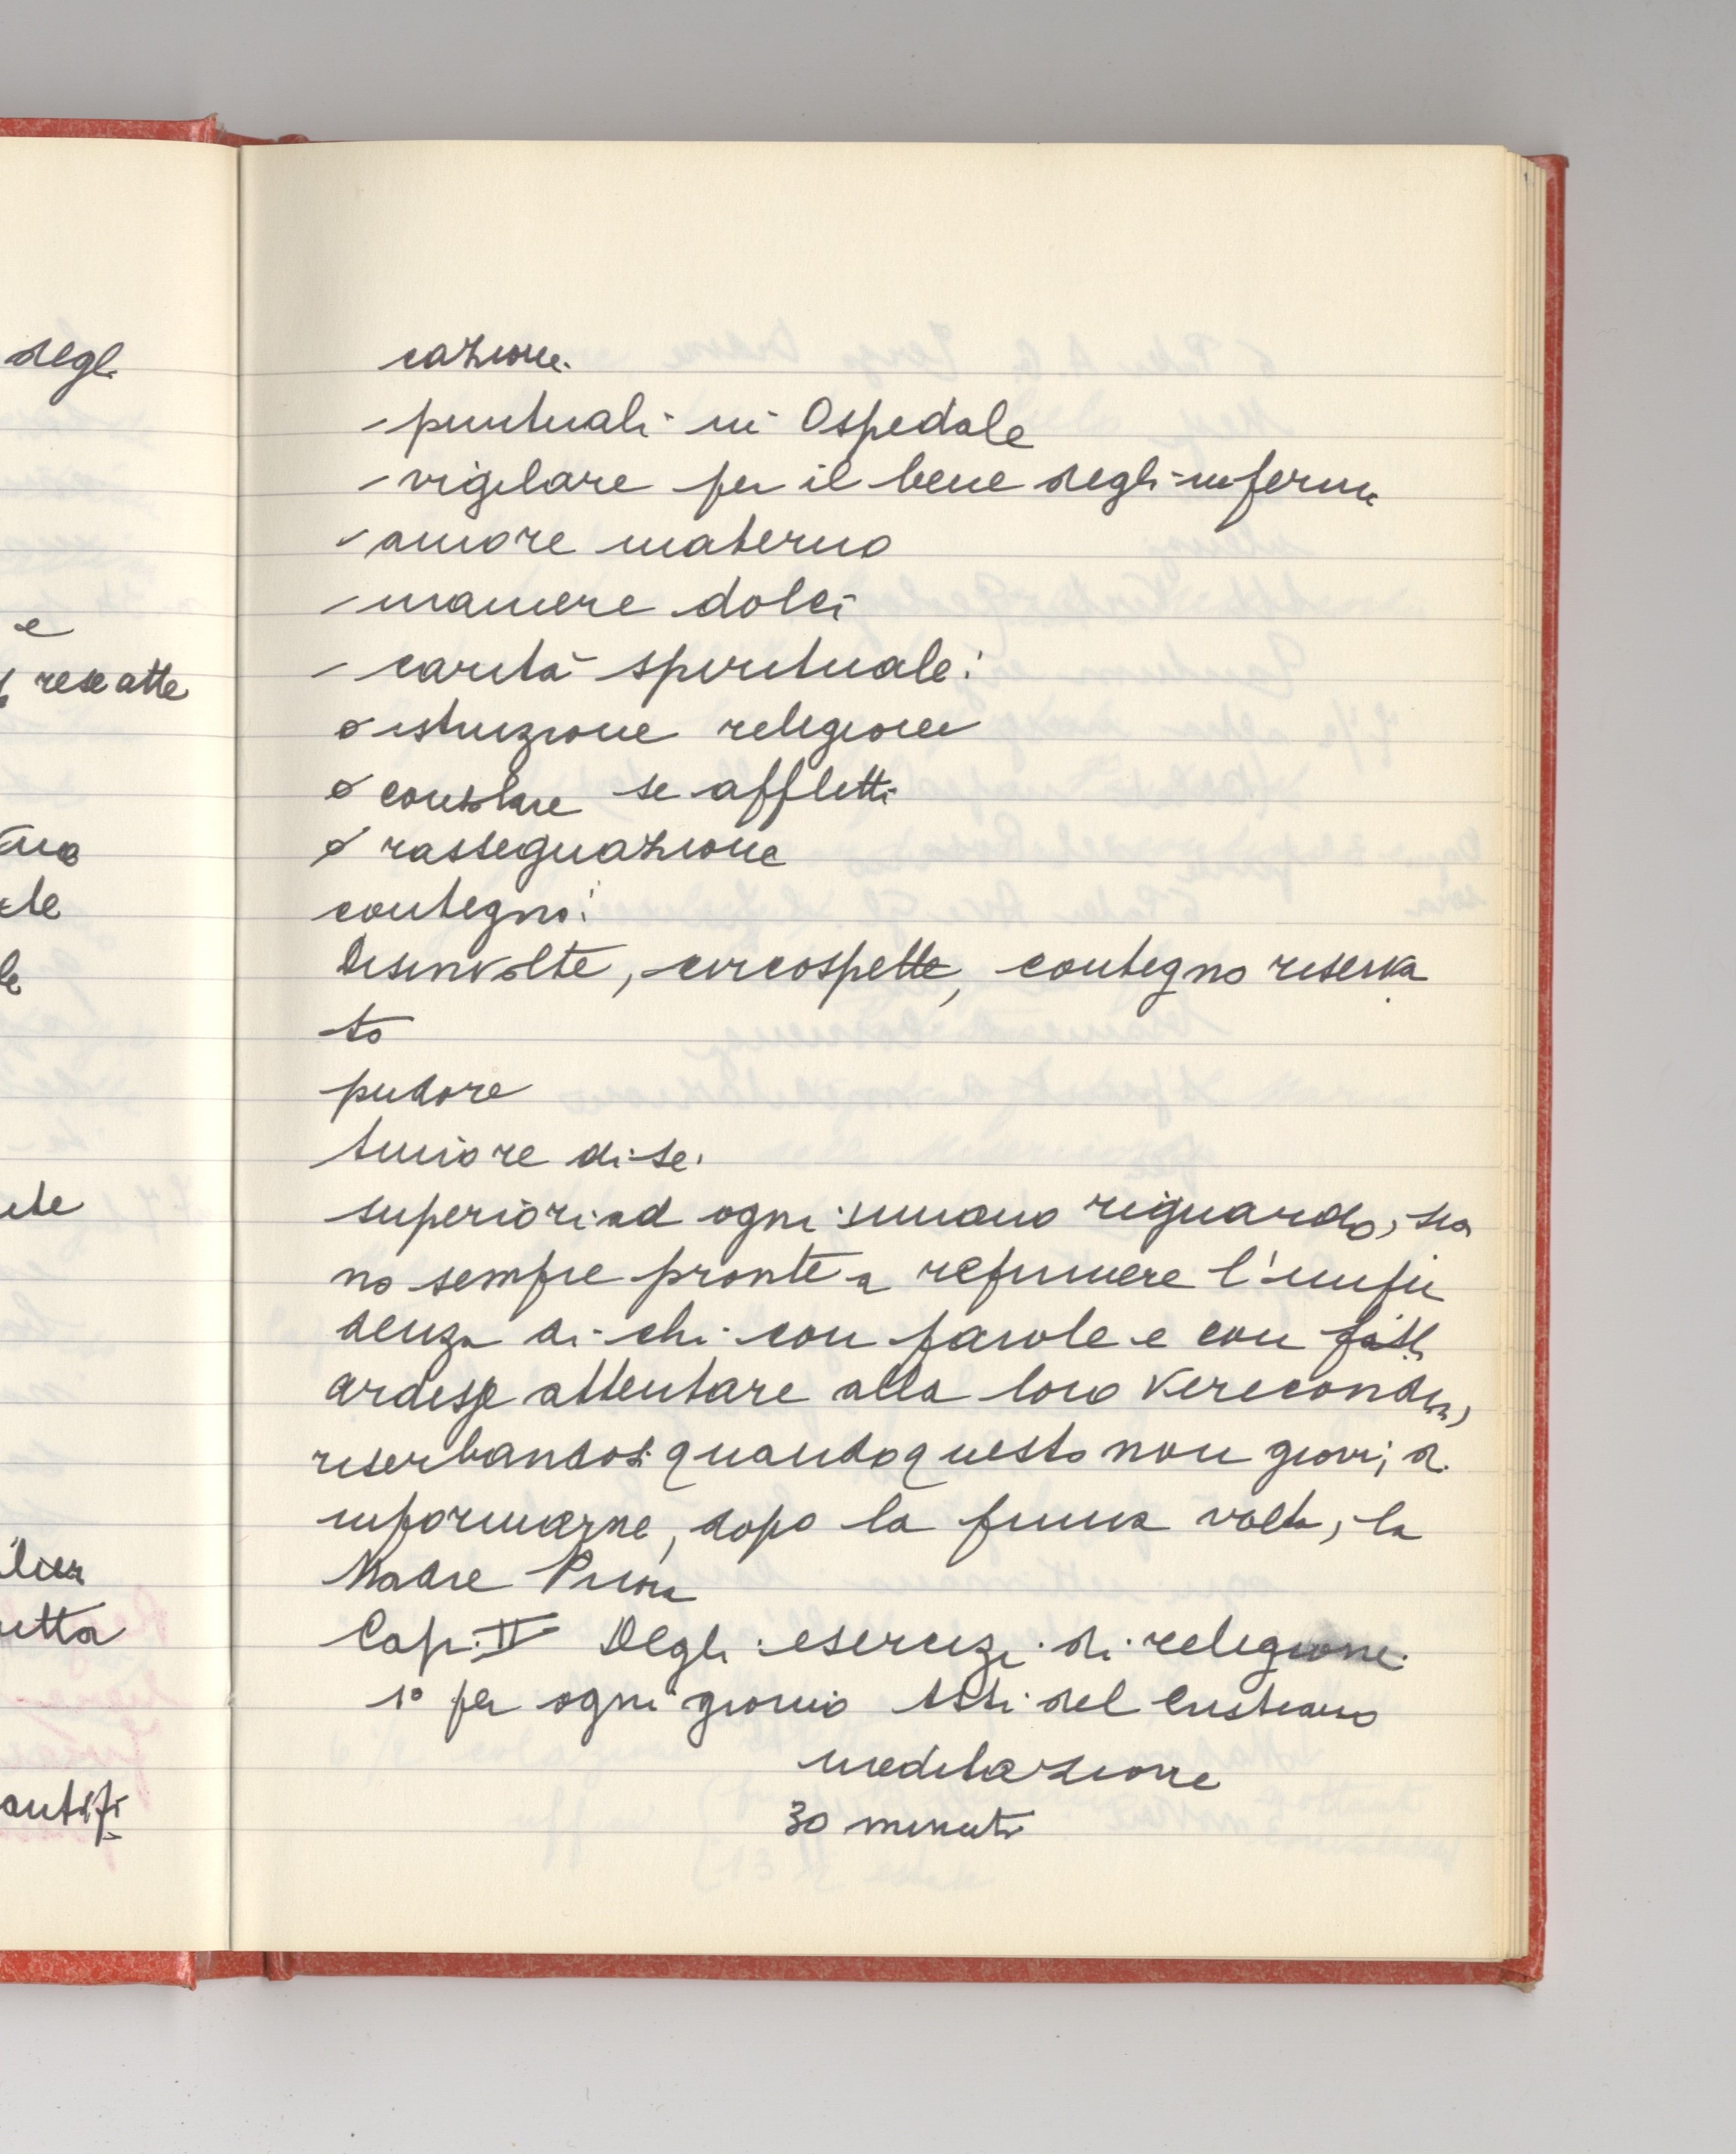 cazione.
- puntuali in Ospedale
- vigilare per il bene degli infermi
- amore materno
- maniere dolci
- carità spirituale:
istruzione religiosa
consolare se afflitti
rassegnazione
contegno:
Disinvolte, circospette, contegno riserva
to
pudore
timore di se.
superiori ad ogni umano riguardo, sia
no sempre pronte a reprimere l'impu
denza di chi con parole e con fatti
ardisse attentare alla loro verecondia,
riserbandosi quando questo non giovi, di
informarne, dopo la prima volta, la
Madre Priora
Cap. II Degli esercizi di religione.
1° per ogni giorno Atti del Cristiano
meditazione
30 minuti
degli
e
rese atte
etta